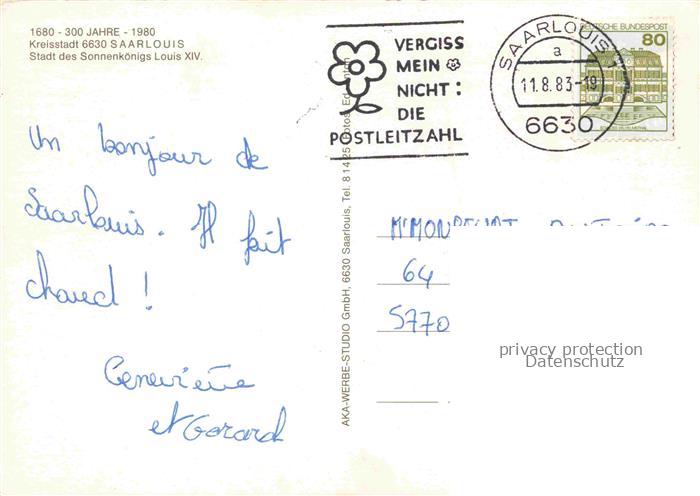 1680 - 300 JAHRE - 1980
Kreisstadt 6630 SAARLOUIS
Stadt des Sonnenkönigs Louis XIV.
VERGISS
MEIN
NICHT:
DIE
POSTLEITZAHL
SAARLOUIS 1
a
11.8.83-19
6630
DEUTSCHE BUNDESPOST
80
Un bonjour de
Saarlouis. Il fait
chaud !
Geneviève
et Gérard
AKA-WERBE-STUDIO GmbH, 6630 Saarlouis, Tel. 81425
64
5770
privacy protection
Datenschutz